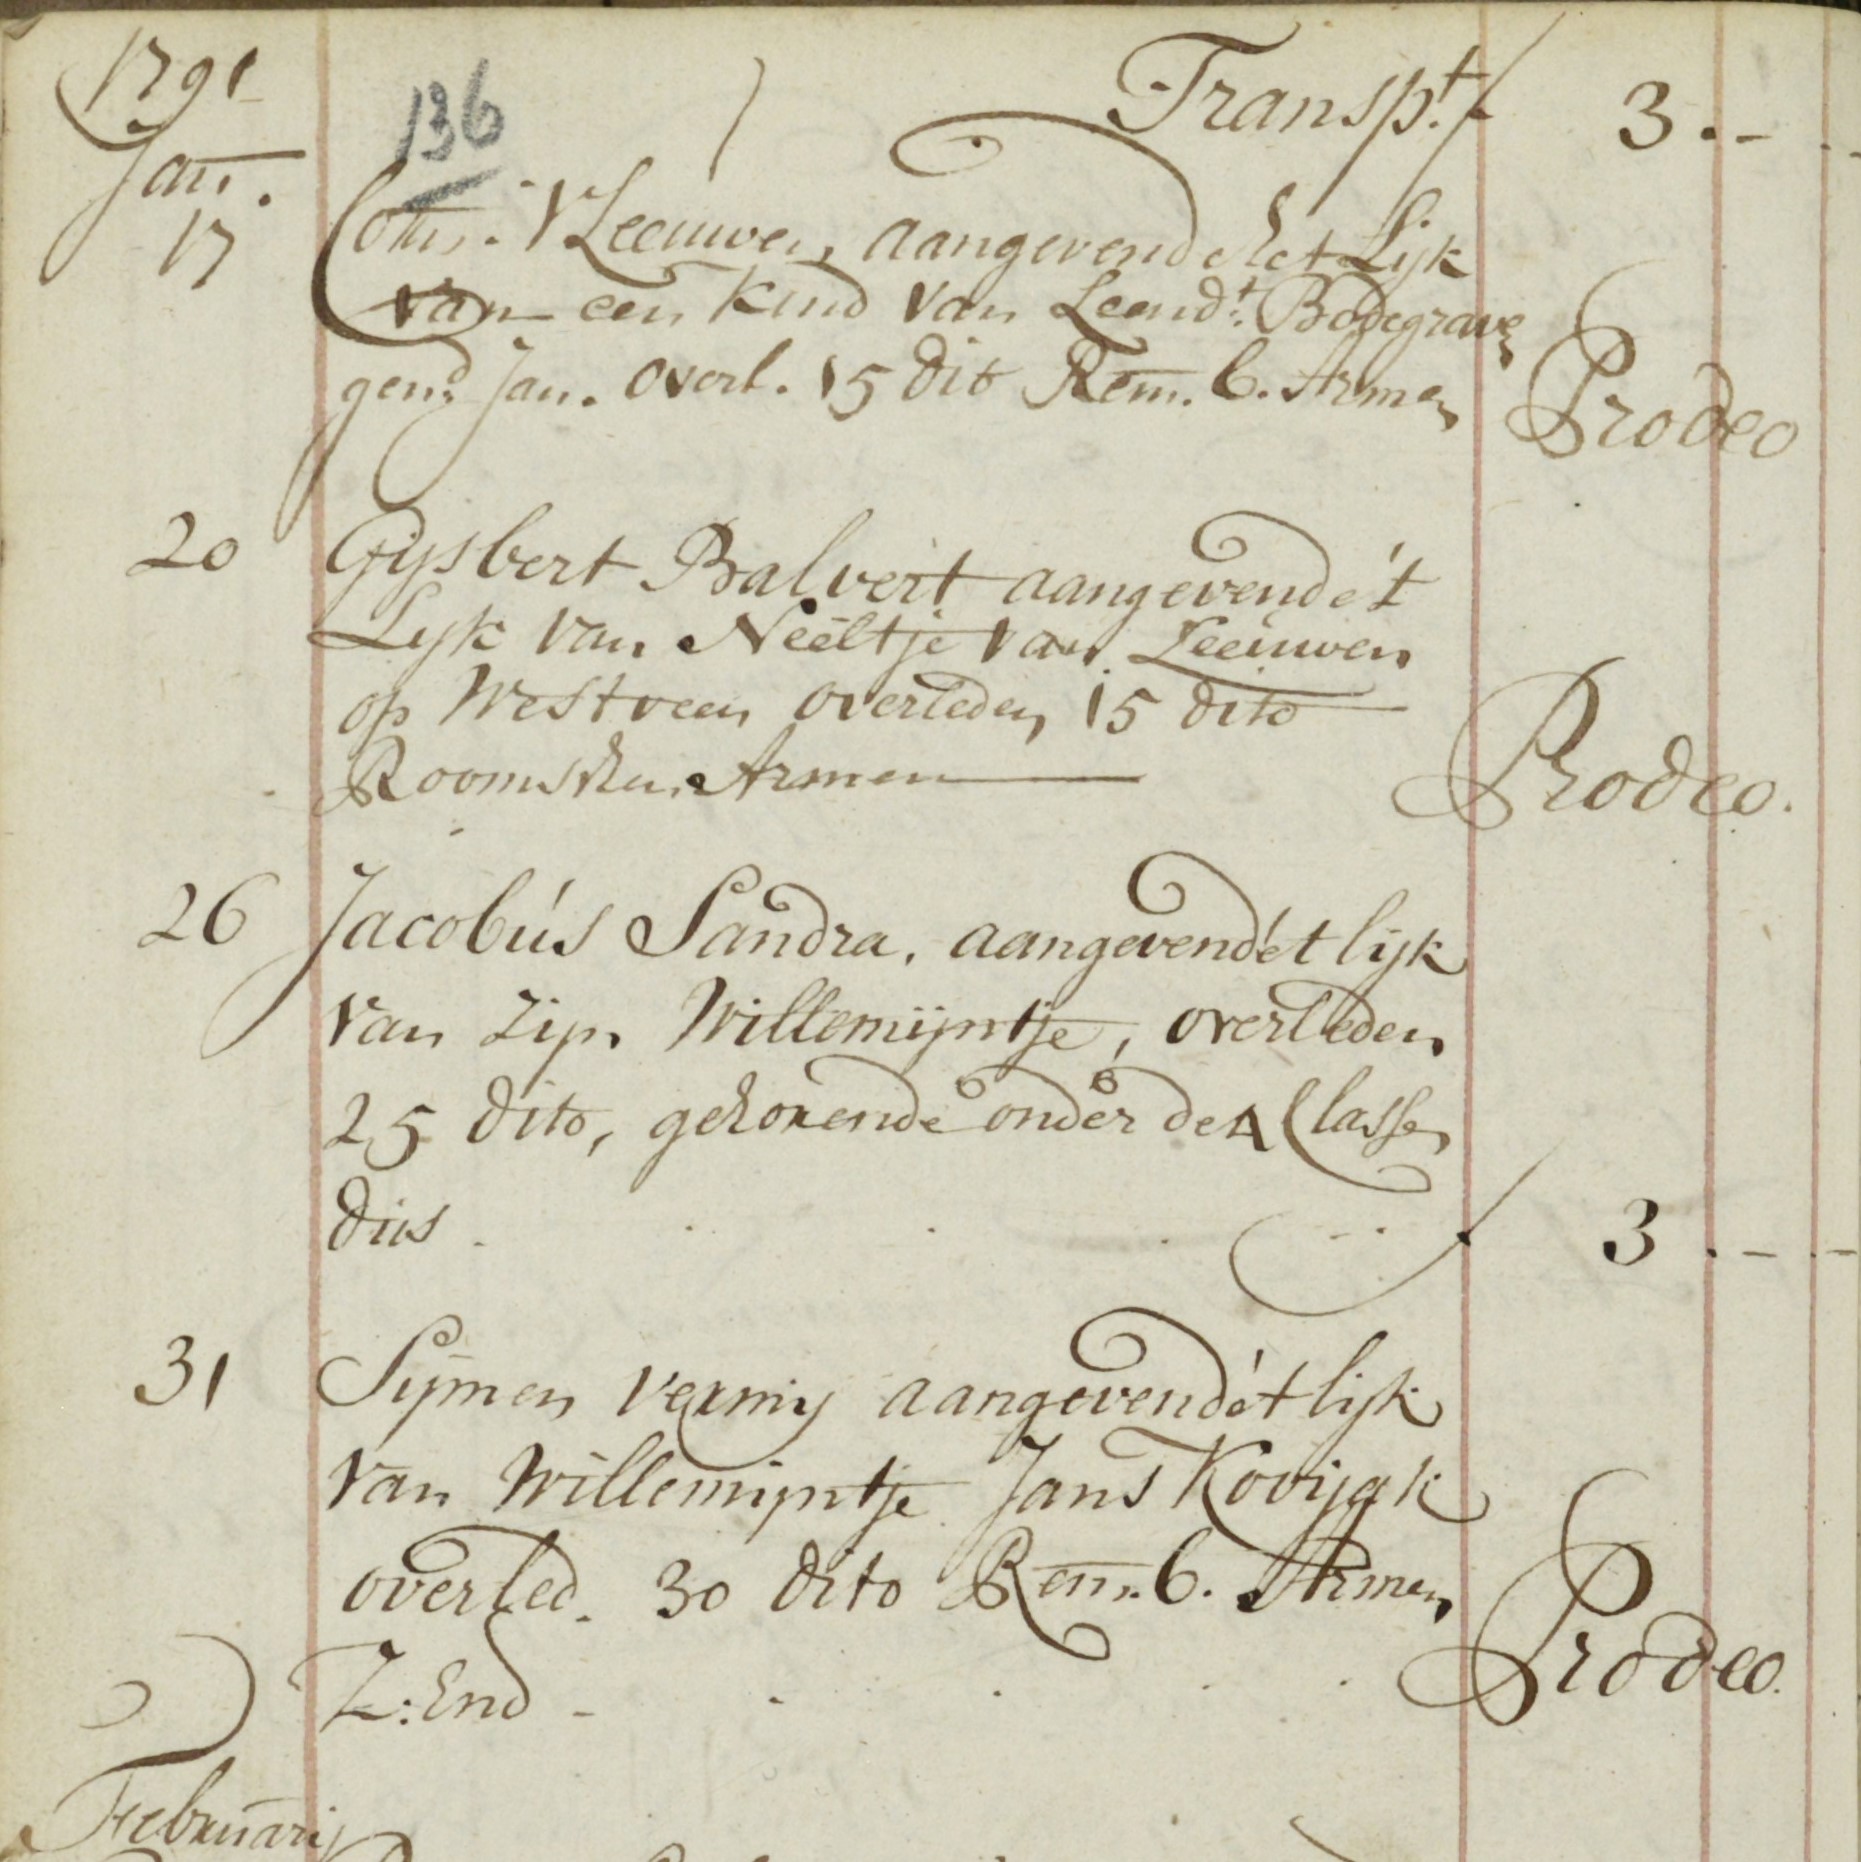 1791
136
Transp.t f 3.-
Jan.
17 Corns. V Leeuwen, aangevende het Lijk
van een kind van Leend.t Bodegrave
gen.d Jan. overl. 15 dito Rem. G. Armen Prodeo
20 Gijsbert Balvert aangevende 't
Lijk van Neeltje van Leeuwen
op Westveen overleden 15 dito
Roomschen Armen Prodeo.
26 Jacobus Sandra, aangevende 't lijk
van zijn Willemijntje, overleden
25 dito, gehorende onder de 4 Classe
dus . . . . f 3.--
31 Sijmen vermij aangevende 't lijk
van Willemijntje Jans
overled. 30 dito Rem. G. Armen
Z: End - . . . Prodeo.
Februarij